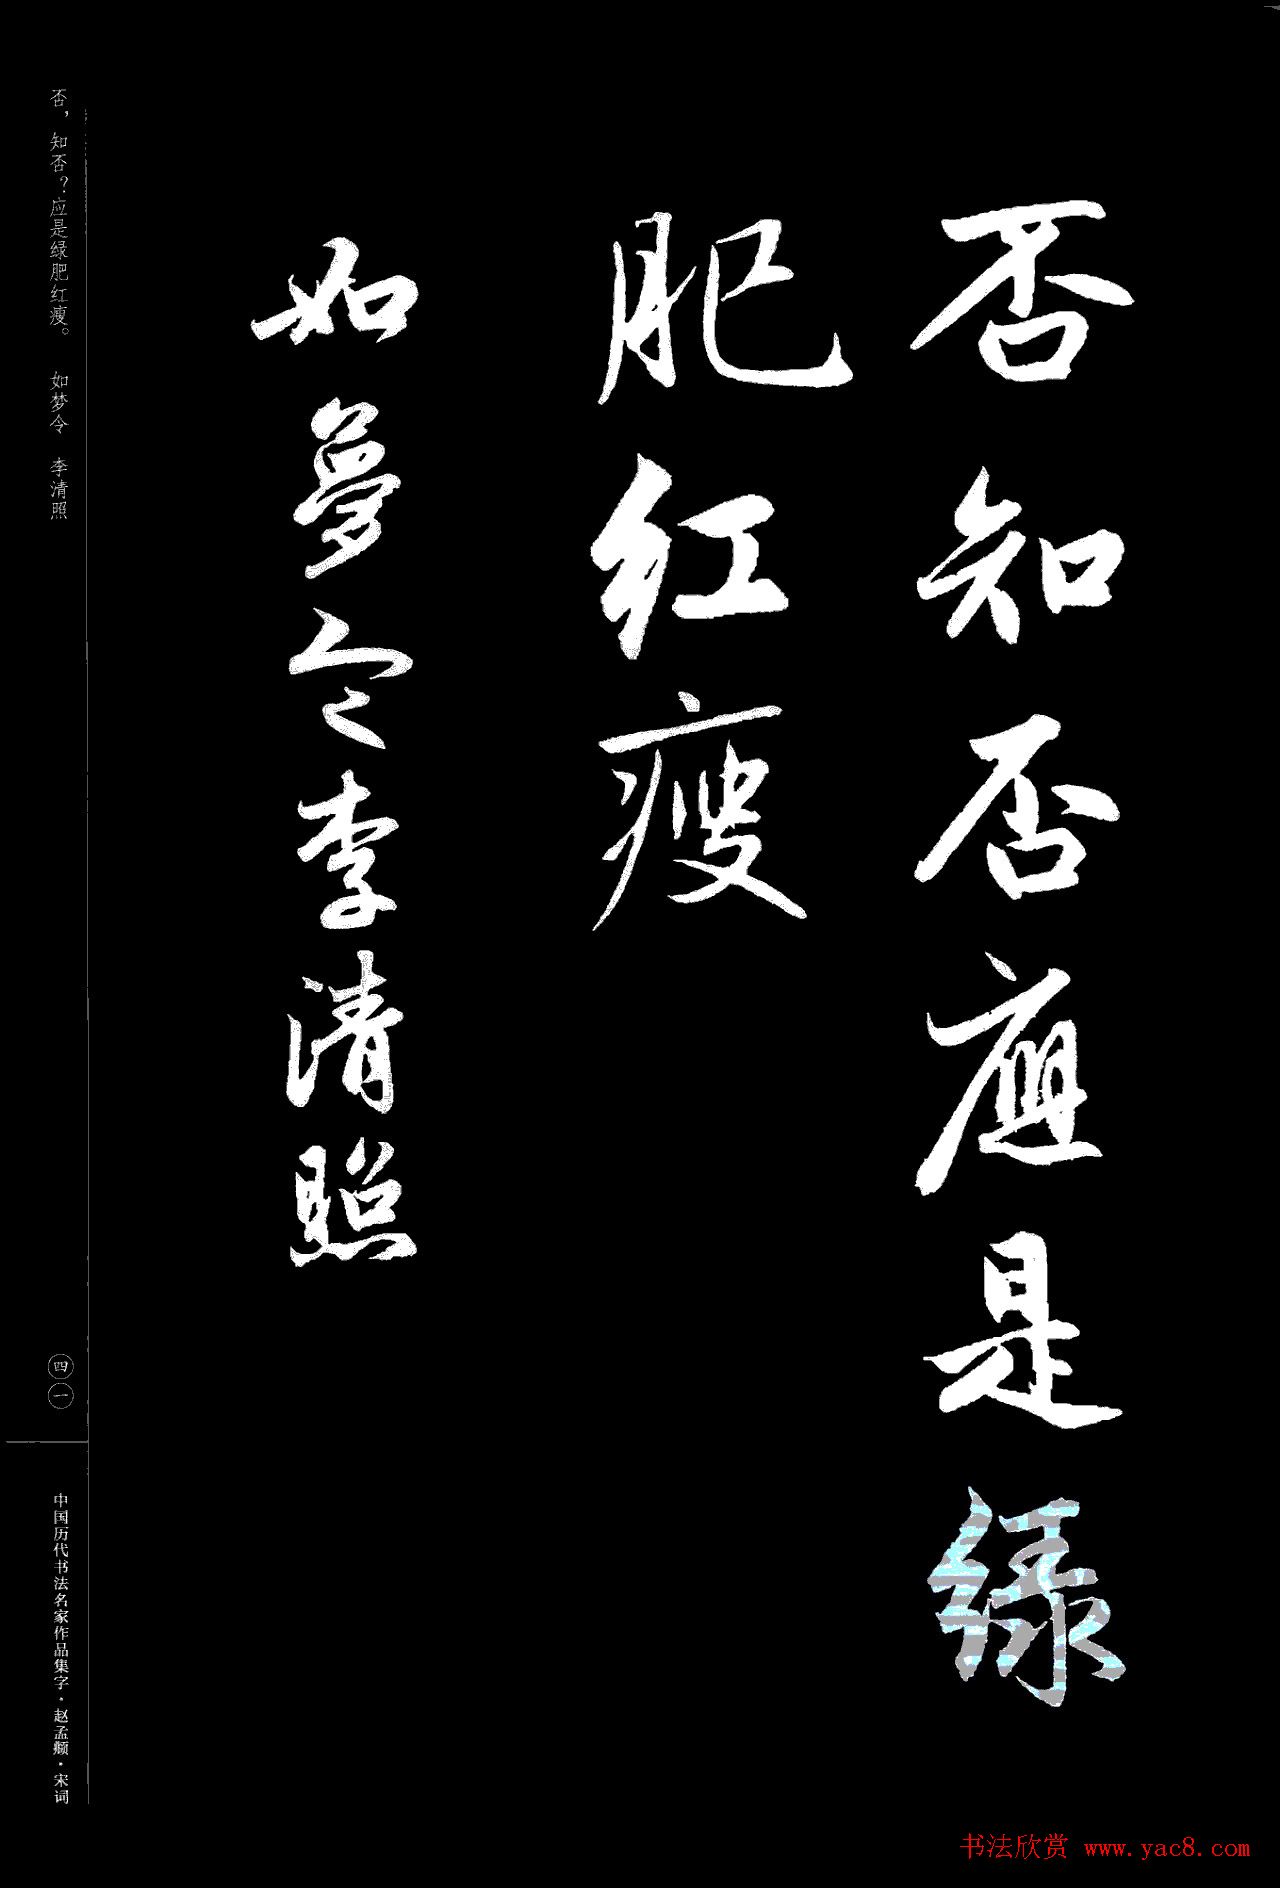 否知否應是绿
肥红瘦
如夢令李清照
否，知否？应是绿肥红瘦。 如梦令 李清照
四一
中国历代书法名家作品集字·赵孟頫·宋词
书法欣赏 www.yac8.com